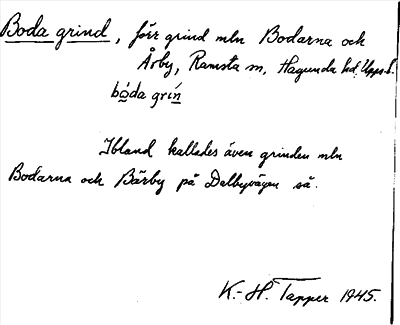 Boda grind, förr grind mln Bodarna och
Årby, Ramsta sn, Hagunda hd, Upps. l.
bóda grín
Ibland kallades även grinden mln
Bodarna och Bärby på Dalbyvägen så.
K.-H. Tapper 1945.